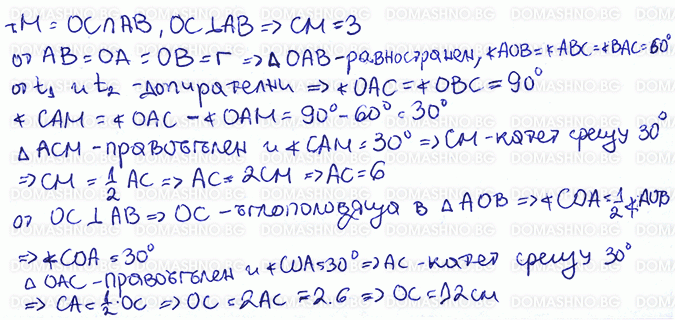 т.M = OC∩AB, OC⊥AB => CM = 3
от AB = OA = OB = r => △OAB - равностранен, ∢AOB = ∢ABC = ∢BAC = 60°
от t₁ и t₂ - допирателни => ∢OAC = ∢OBC = 90°
∢CAM = ∢OAC - ∢OAM = 90° - 60° = 30°
△ACM - правоъгълен и ∢CAM = 30° => CM - катет срещу 30°
=> CM = 1/2 AC => AC = 2CM => AC = 6
от OC⊥AB => OC - ъглополовяща в △AOB => ∢COA = 1/2 ∢AOB
=> ∢COA = 30°
△OAC - правоъгълен и ∢COA = 30° => AC - катет срещу 30°
=> CA = 1/2 · OC => OC = 2AC = 2.6 => OC = 12 см